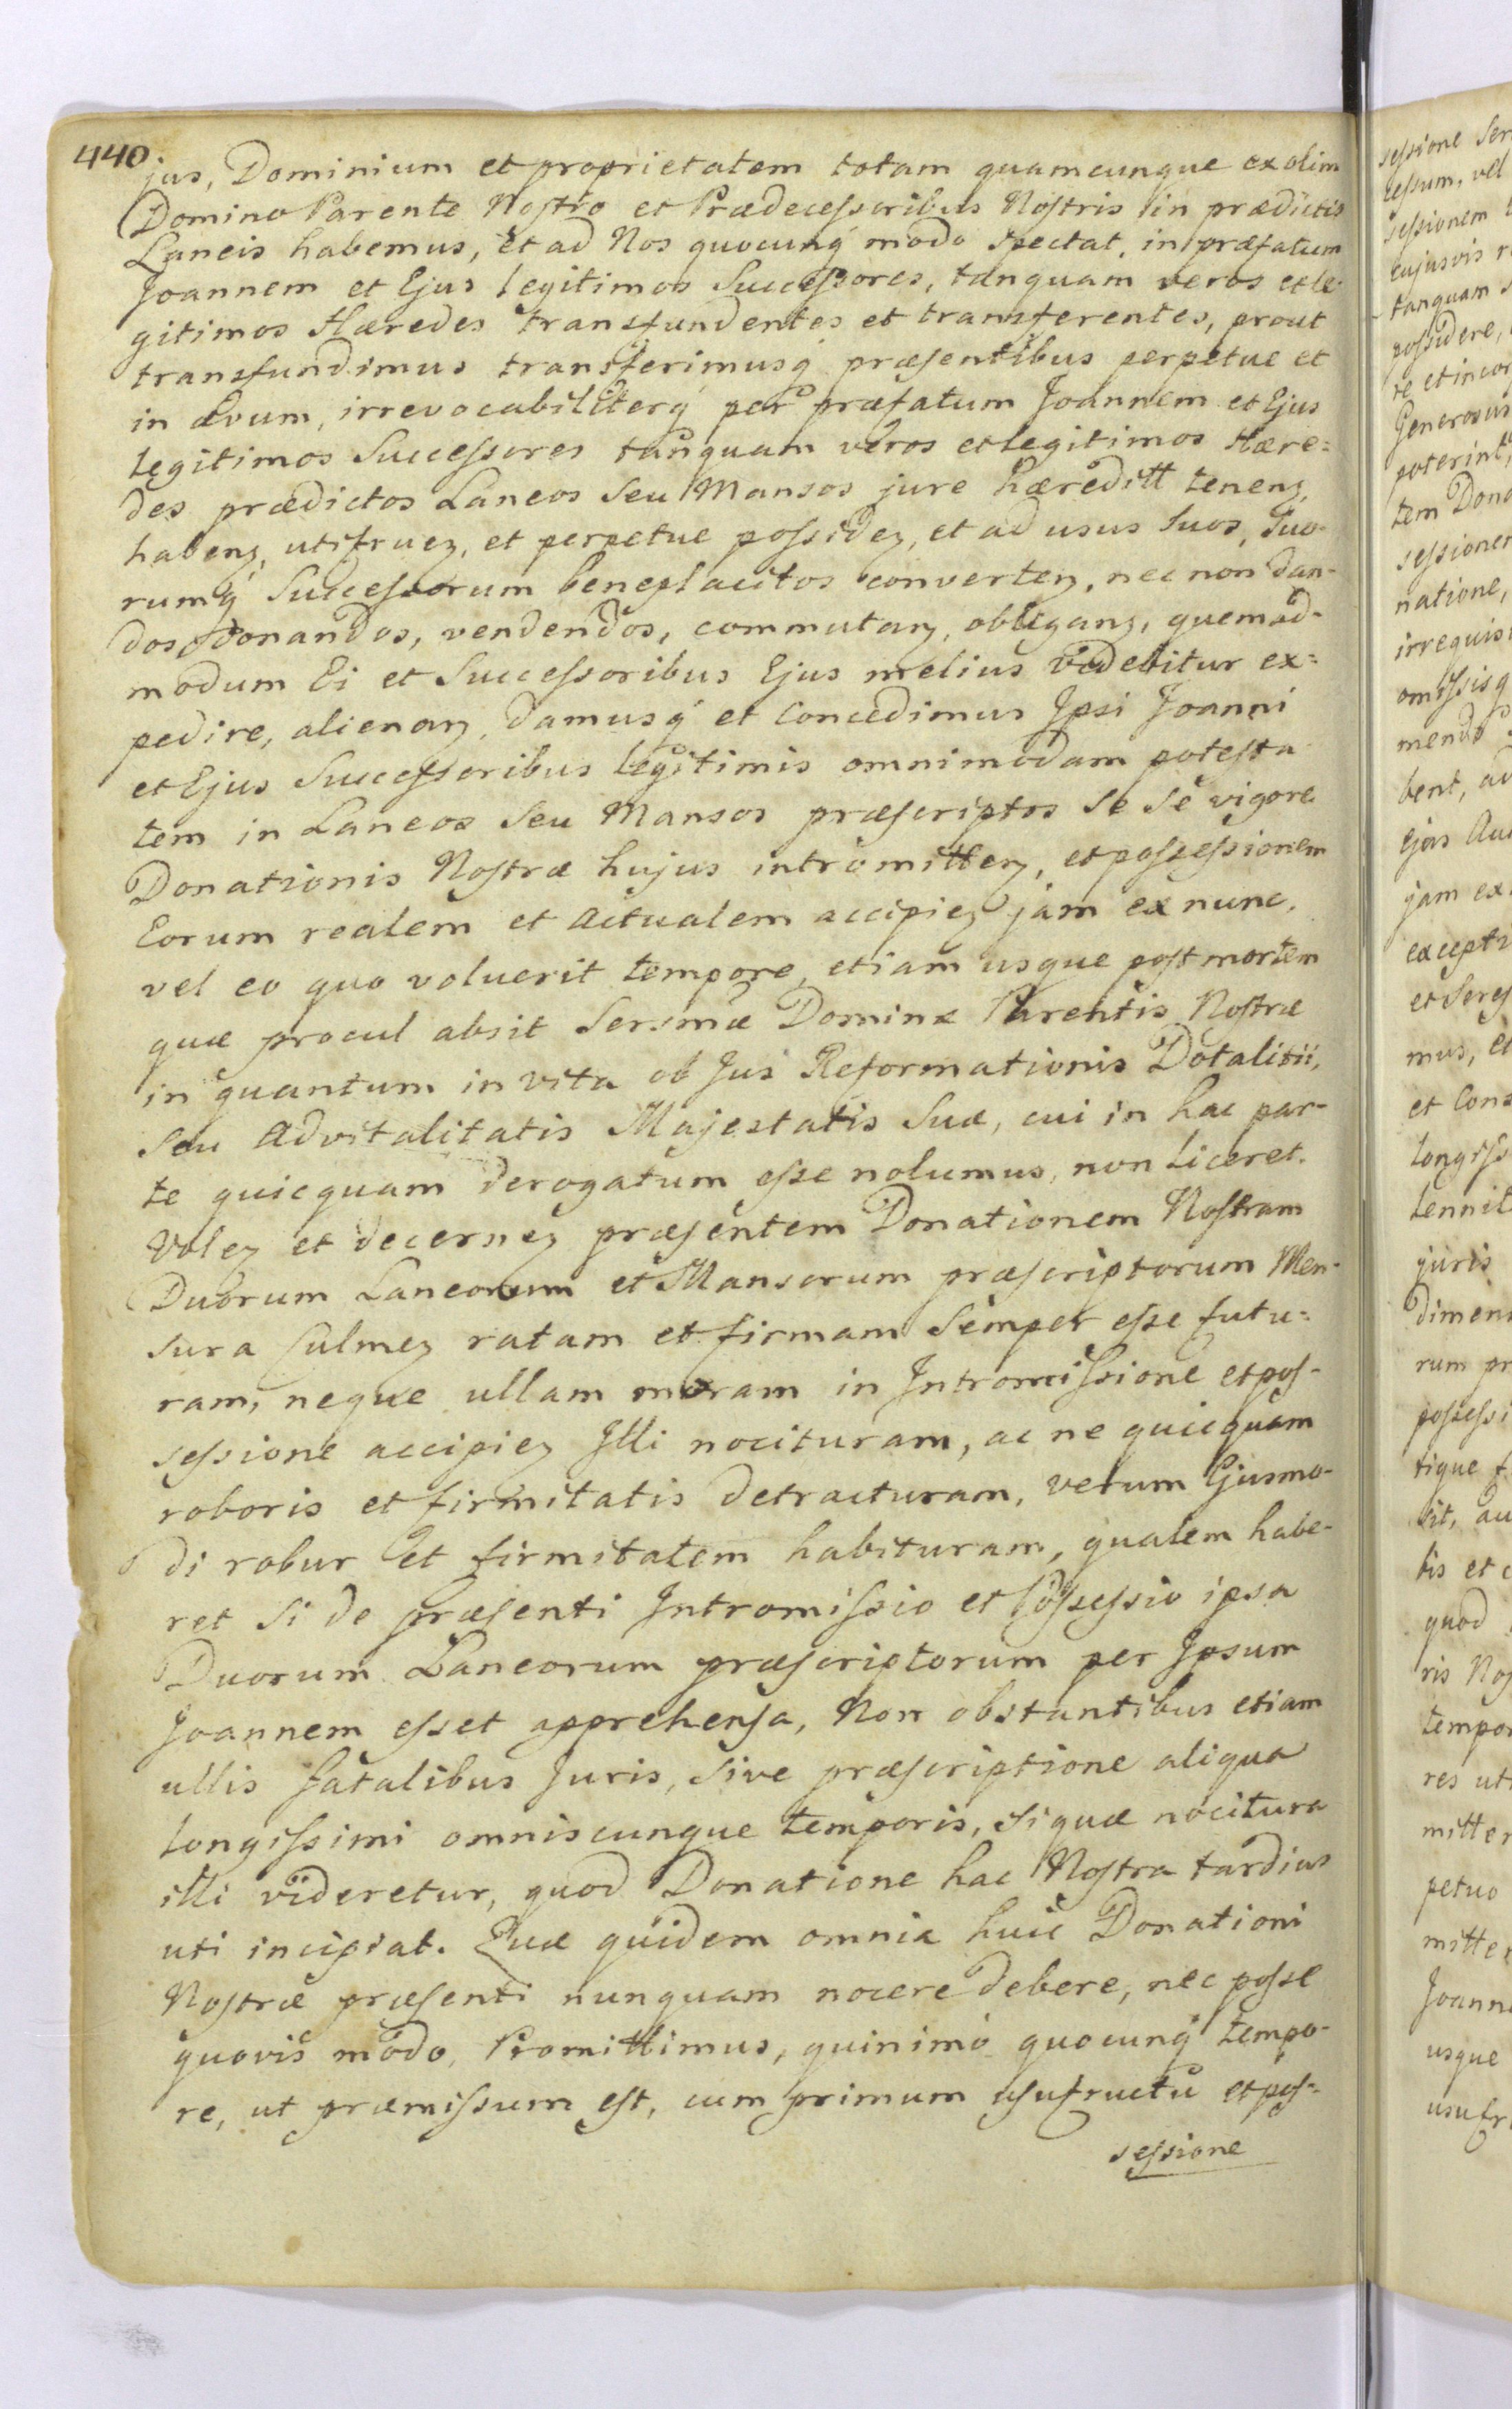 440.
jus, Dominium et proprietatem totam quamcunque ex olim
Domino Parente Nostro et Prædecessoribus Nostris in prædictis
Laneis habemus, et ad Nos quocunq́ modo spectat, in præfatum
Joannem et Ejus legitimos Successores, tanquam veros et le-
gitimos Hæredes transfundentes et transferentes, prout
transfundimus transferimusq́ præsentibus perpetue et
in ævum, irrevocabiliterq́ per præfatum Joannem et Ejus
legitimos Successores tanquam veros et legitimos Hære=
des prædictos Laneos seu Mansos jure hæreditt tenenꝫ,
habenꝫ, utifrueꝫ, et perpetue possideꝫ, et ad usus suos, suo-
rumq́ Successorum beneplacitos converteꝫ, nec non dan-
dos, donandos, vendendos, commutanꝫ, obliganꝫ, quemad-
modum Ei et Successoribus Ejus melius videbitur ex=
pedire, alienanꝫ, damusq́ et concedimus Ipsi Joanni
et Ejus Successoribus legitimis omnimodam potesta
tem in Laneos seu Mansos præscriptos se se vigore
Donationis Nostræ hujus intromitteꝫ, et possessionem
Eorum realem et actualem accipieꝫ jam ex nunc,
vel eo quo voluerit tempore, etiam usque post mortem
quæ procul absit Sersmæ Dominæ Parentis Nostræ
in quantum in vita ob Jus Reformationis Dotalitii,
seu Advitalitatis Majestatis Suæ, cui in hac par-
te quicquam derogatum esse nolumus, non liceret.
Voleꝫ et decerneꝫ præsentem Donationem Nostram
Duorum Laneorum et Mansorum præscriptorum Men-
sura Culmeꝫ ratam et firmam semper esse futu=
ram, neque ullam moram in Intromissione et pos-
sessione accipieꝫ Illi nocituram, ac ne quicquam
roboris et firmitatis detracturam, verum Ejusmo-
di robur et firmitatem habituram, qualem habe-
ret si de præsenti Intromissio et Possessio ipsa
Duorum Laneorum præscriptorum per Ipsum
Joannem esset apprehensa, Non obstantibus etiam
ullis fatalibus Juris, sive præscriptione aliqua
longissimi omniscunque temporis, si quæ nocitura
illi videretur, quod Donatione hac Nostra tardius
uti incipiat. Quæ quidem omnia huic Donationi
Nostræ præsenti nunquam nocere debere, nec posse
quovis modo, Promittimus, quinimo quocunq́ tempo-
re, ut præmissum est, cum primum usufructu et pos=
sessione